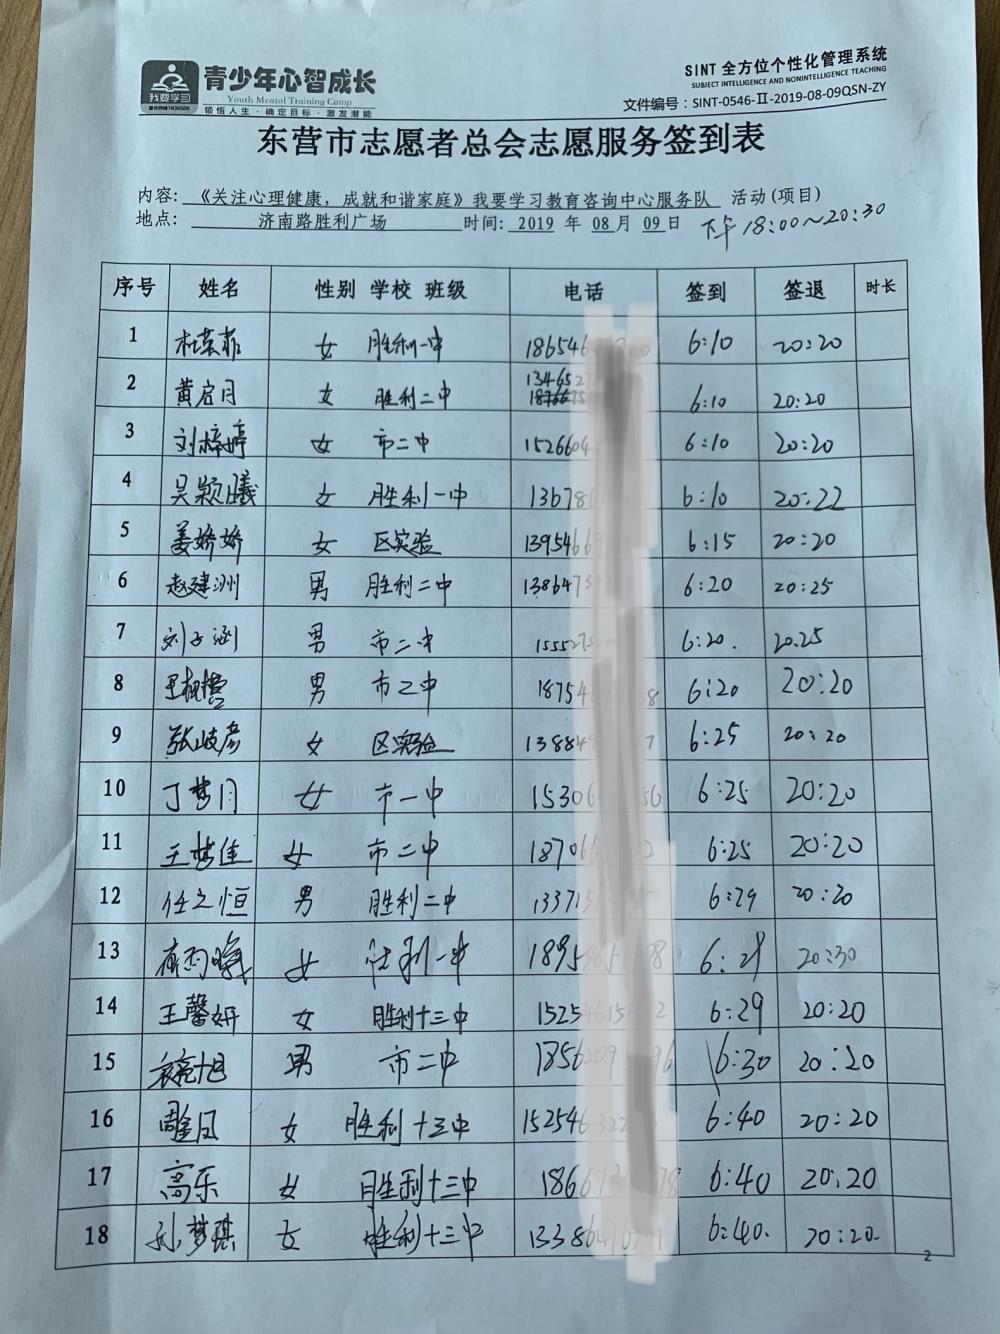 我要学习
青少年心智成长
Youth Mental Training Camp
领悟人生·确定目标·激发潜能
SINT 全方位个性化管理系统
SUBJECT INTELLIGENCE AND NONINTELLIGENCE TEACHING
文件编号：SINT-0546-Ⅱ-2019-08-09QSN-ZY
东营市志愿者总会志愿服务签到表
内容：《关注心理健康，成就和谐家庭》我要学习教育咨询中心服务队 活动(项目)
地点：济南路胜利广场 时间：2019 年 08 月 09 日 下午 18:00～20:30
序号 姓名 性别 学校 班级 电话 签到 签退 时长
1 杜芸菲 女 胜利一中 186546 6:10 20:20
2 黄启月 女 胜利二中 134652 6:10 20:20
3 刘梓婷 女 市二中 1526604 6:10 20:20
4 吴颖曦 女 胜利一中 13678 6:10 20:22
5 姜娇娇 女 区实验 139546 6:15 20:20
6 赵建洲 男 胜利二中 1386473 6:20 20:25
7 刘子涵 男 市二中 155527 6:20. 20.25
8 男 市二中 1875 6:20 20:20
9 张岐彦 女 区实验 13884 6:25 20:20
10 丁梦月 女 市一中 15306 56 6:25 20:20
11 王梦佳 女 市二中 18706 32 6:25 20:20
12 任之恒 男 胜利二中 133715 6:29 20:20
13 女 胜利一中 1895 8 6:29 20:30
14 王馨妍 女 胜利十三中 15254615 2 6:29 20:20
15 男 市二中 1856209 96 6:30 20:20
16 女 胜利十三中 152546322 6:40 20:20
17 高乐 女 胜利十三中 186613 78 6:40 20:20
18 孙梦琪 女 胜利十三中 1338647 01 6:40. 20:20.
2